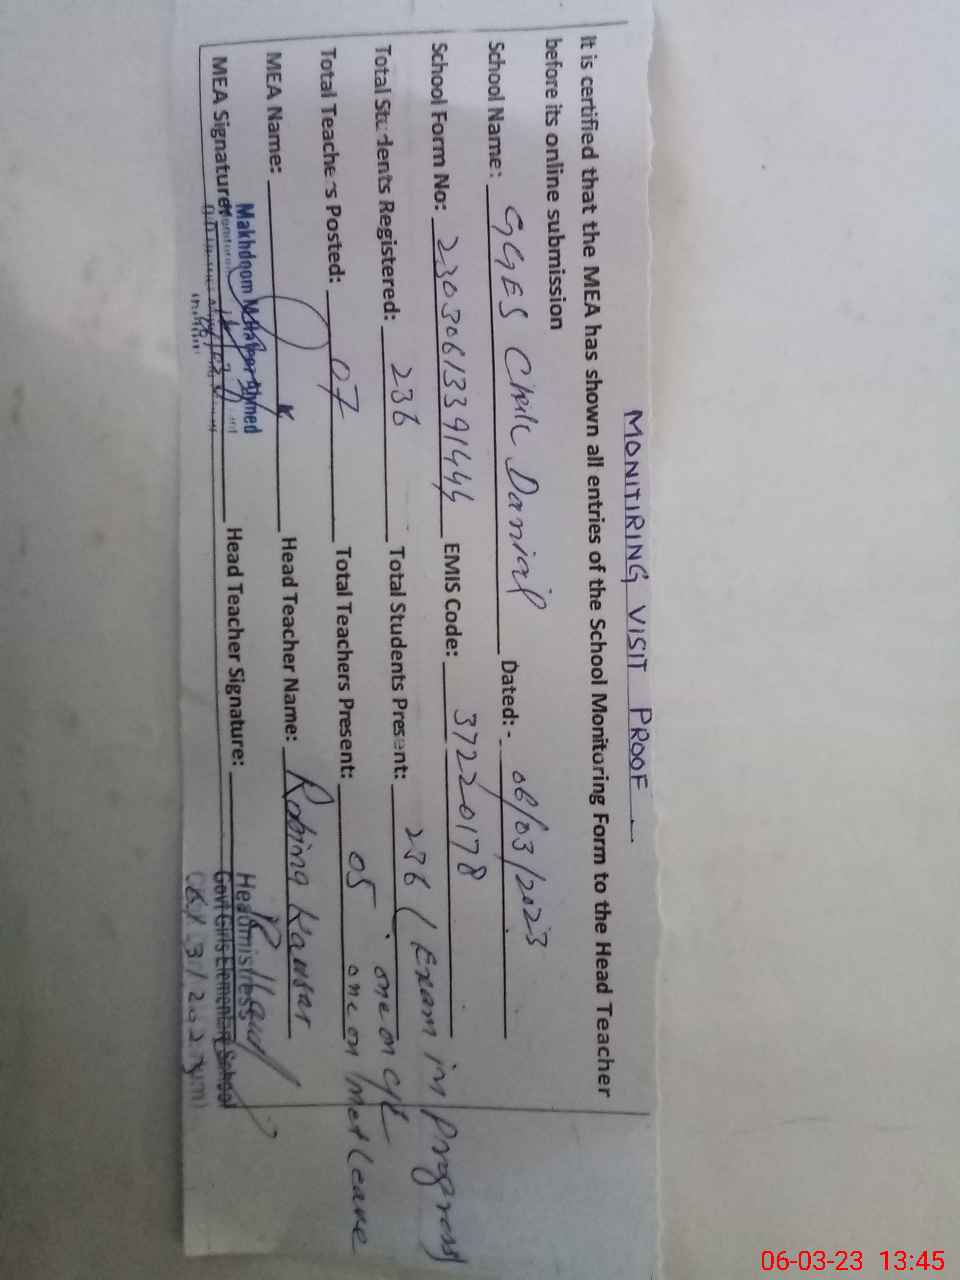 MONITIRING VISIT PROOF
It is certified that the MEA has shown all entries of the School Monitoring Form to the Head Teacher
before its online submission
School Name: GGES Chak Danial Dated:- 06/03/2023
School Form No: EMIS Code: 37220178
Total Students Registered: 236 Total Students Present: 236 (Exam in Progress)
Total Teachers Posted: 07 Total Teachers Present: 05 one on
one on Leave
MEA Name: Head Teacher Name: Robina Kausar
Makhdoom Ahmed
MEA Signature: Head Teacher Signature:
Headmistress
Govt Girls Elementary School
06-03-23 13:45